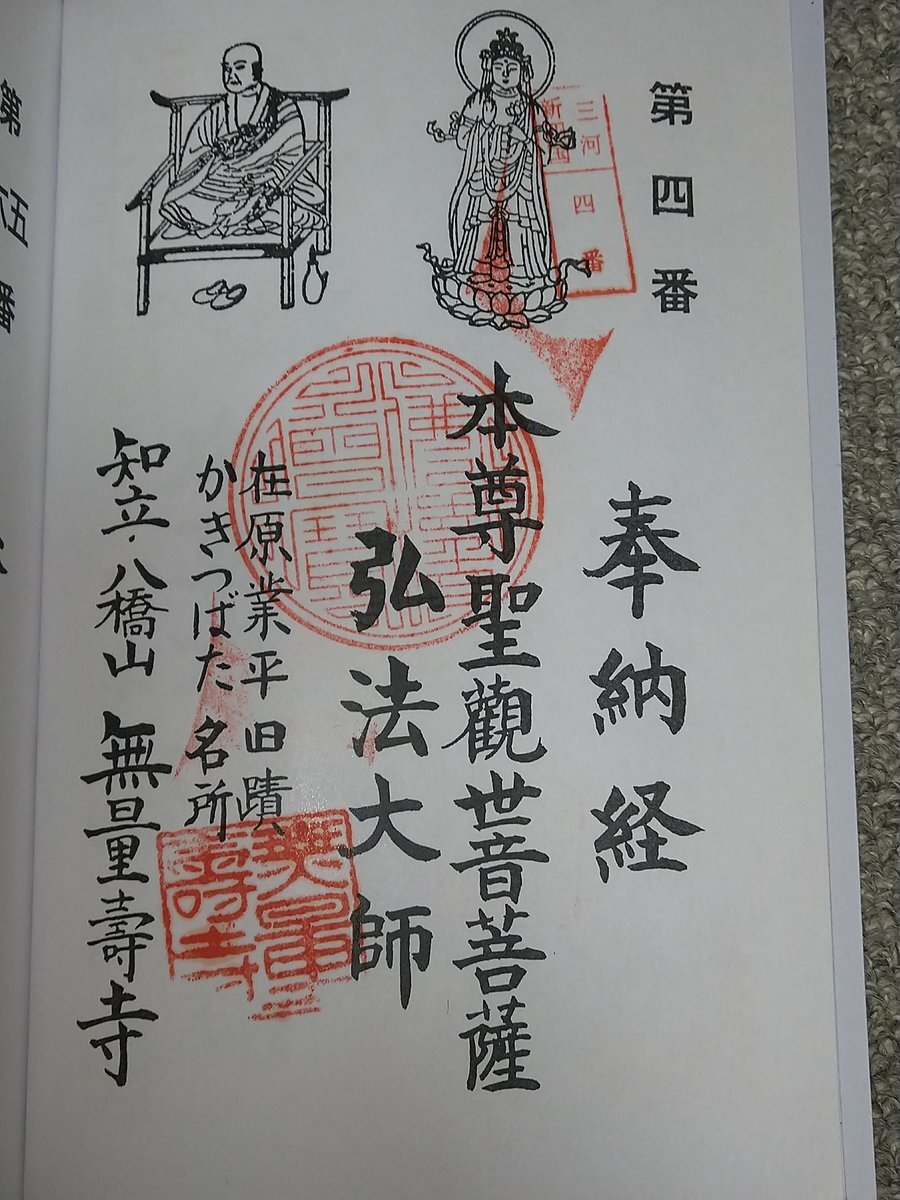 第四番
三河
新四国
四番
奉納経
本尊聖觀世音菩薩
弘法大師
在原業平旧蹟
かきつばた名所
知立・八橋山 無量壽寺
無量
壽寺
第
五
番